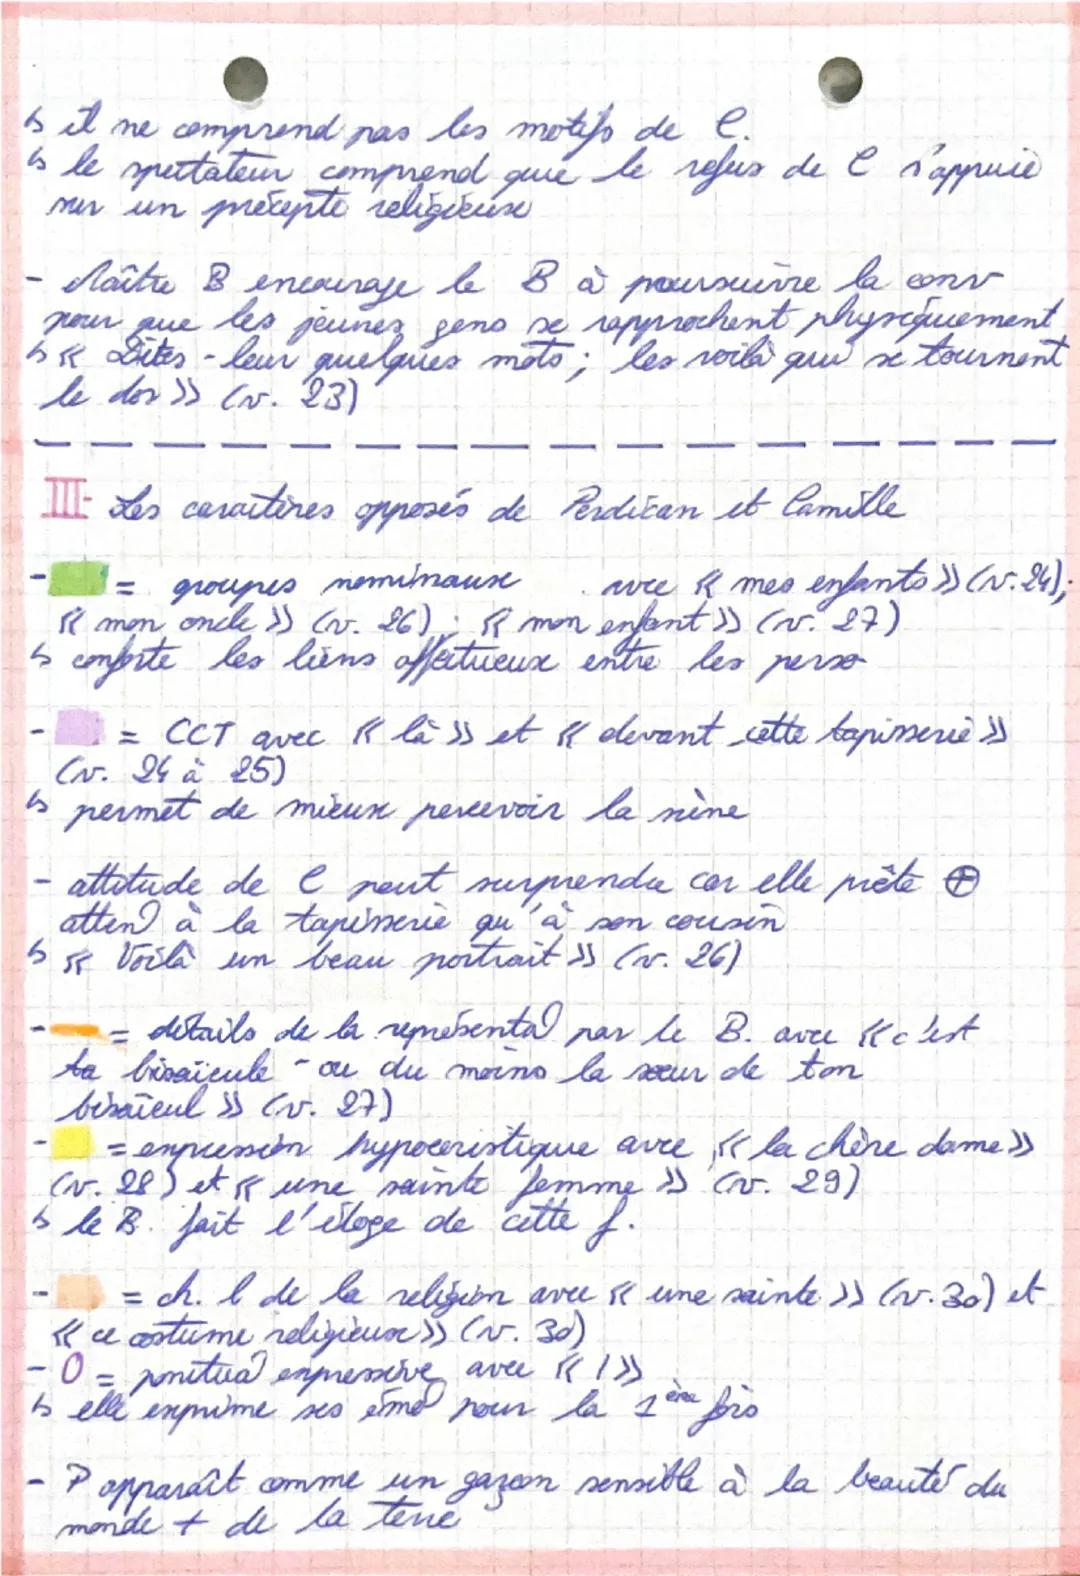 ↳ il ne comprend pas les motifs de C.
↳ le spectateur comprend que le refus de C s'appuie
sur un précepte religieuse
- Maître B encourage le B à poursuivre la conv
pour que les jeunes gens se rapprochent physiquement
↳ « Dites-leur quelques mots ; les voilà qui se tournent
le dos » (v. 23)
III- Les caractères opposés de Perdican et Camille
- = groupes nominaux avec « mes enfants » (v. 24),
« mon oncle » (v. 26) ; « mon enfant » (v. 27)
↳ conforte les liens affectueux entre les perso
- = CCT avec « là » et « devant cette tapisserie »
(v. 24 à 25)
↳ permet de mieux percevoir la scène
- attitude de C peut surprendre car elle prête ⊕
atten° à la tapisserie qu'à son cousin
↳ « Voilà un beau portrait » (v. 26)
- = détails de la représenta° par le B. avec « c'est
ta bisaïeule - ou du moins la sœur de ton
bisaïeul » (v. 27)
- = expression hypocoristique avec « la chère dame »
(v. 28) et « une sainte femme » (v. 29)
↳ le B. fait l'éloge de cette f.
- = ch. l de la religion avec « une sainte » (v. 30) et
« ce costume religieux » (v. 30)
- O = ponctua° expressive avec « ! »
↳ elle exprime ses émo° pour la 1ère fois
- P apparaît comme un garçon sensible à la beauté du
monde + de la terre